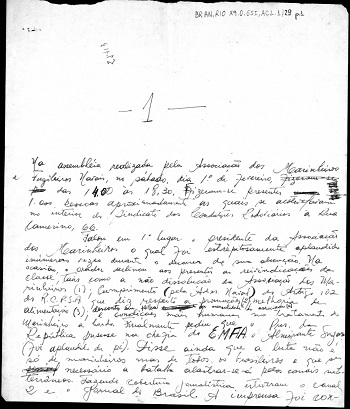 BR AN,RIO X9.0.ESI,ACL.1/29 p.1
— 1 —
Na assembléia realizada pela Associação dos Marinheiros
e Fuzileiros Navais, no sábado, dia 1º de Fevereiro,
das 1400 às 18,30, fizeram-se presentes
1.000 pessoas aproximadamente as quais se
no interior do Sindicato dos Condutores Rodoviários à Rua
Camerino, 66.
Falou em 1º lugar o presidente da Associação
dos Marinheiros o qual foi estrepitosamente aplaudido
inúmeras vezes durante o decurso de sua oração. Na
ocasião, o orador aos presentes as reivindicações da
classe, tais como a não dissolução da Associação dos Ma-
rinheiros (1); cumprimento (pelos Navais) do artigo 102
do R.C.P.S.A que diz respeito a promoção; melhoria de
alimentação (3),
e condições mais humanas no tratamento de
Marinheiro a bordo finalmente pediu que o Pres. da
República pusesse na chefia do EMFA o Almirante
(foi aplaudido de pé). Disse ainda que a luta não é
só de marinheiros mas de todos os brasileiros e que se
necessário a batalha
fazendo cobertura jornalística estiveram o canal
2 e o Jornal do Brasil. A imprensa foi con-